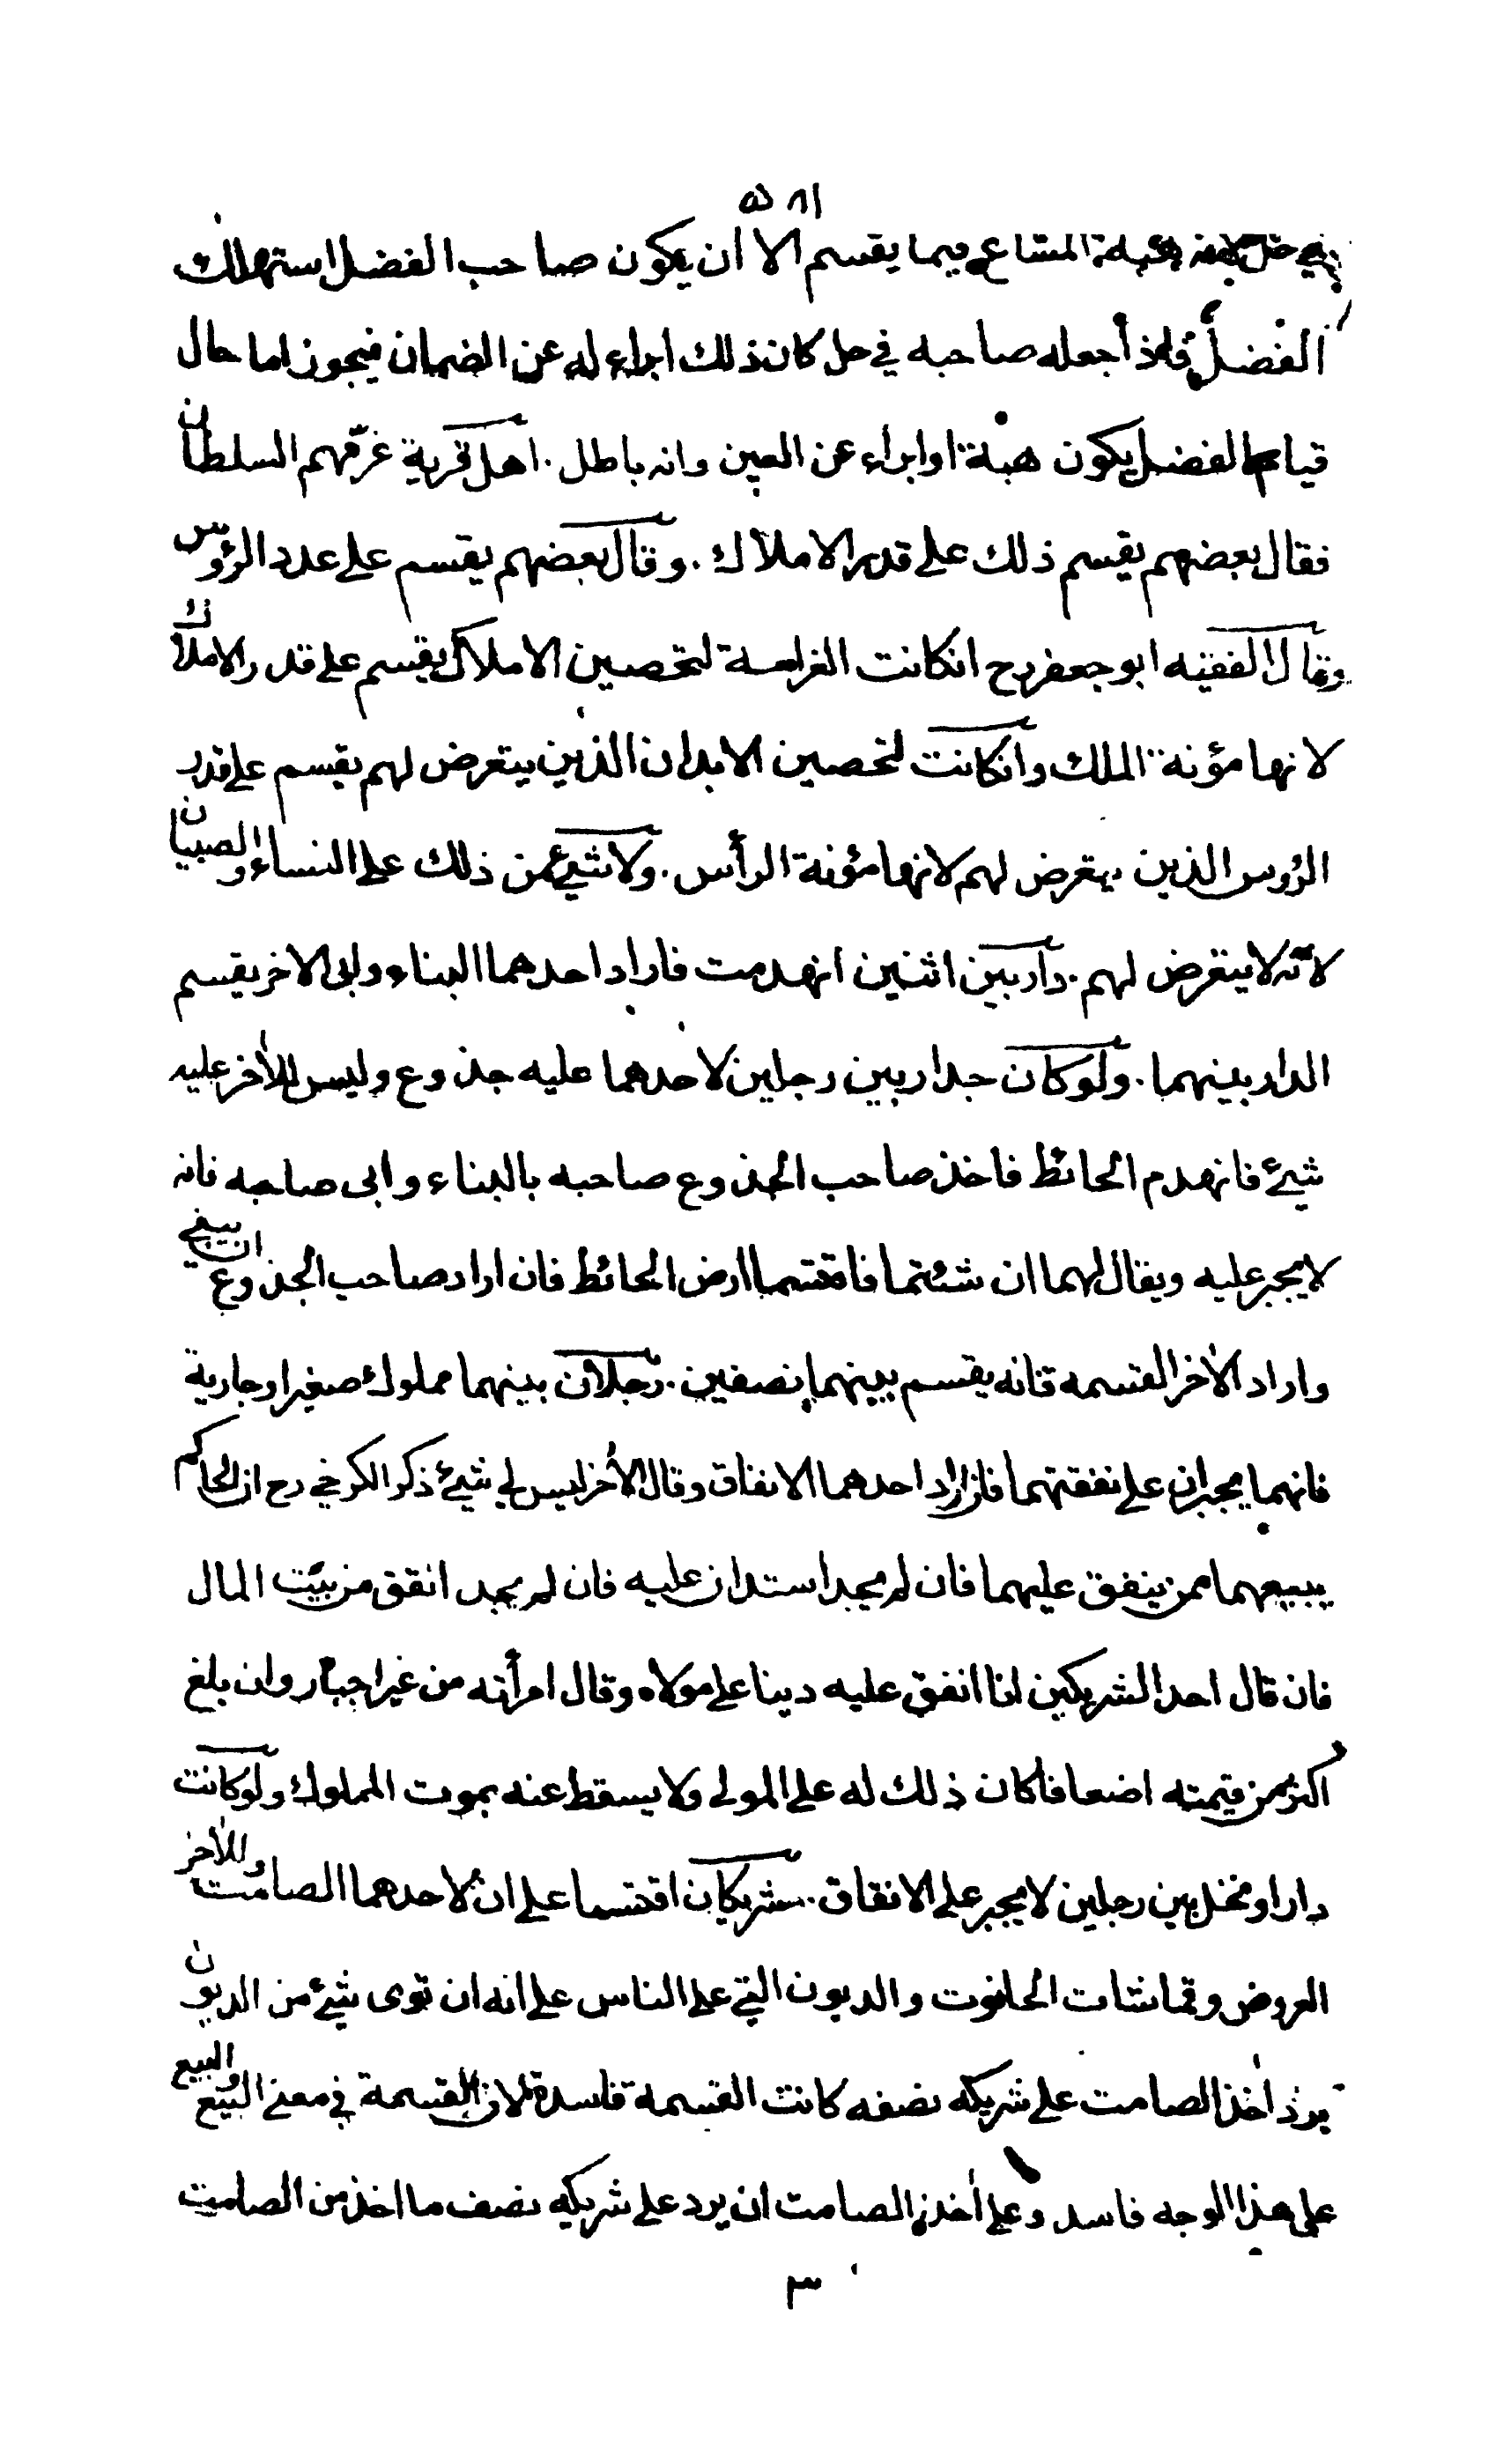 ٥٨١
في حل لانه هبة المشاع فيما يقسم الا ان يكون صاحب الفضل استهلك
الفضل فاذا جعله صاحبه في حل كان ذلك ابراء له عن الضمان فيجوز اما حال
قيام الفضل يكون هبة او ابراء عن العين وانه باطل . اهل قرية غرمهم السلطان
فقال بعضهم يقسم ذلك على قدر الاملاك . وقال بعضهم يقسم على عدد الرؤس
وقال الفقيه ابو جعفر رح ان كانت الغرامة لتحصين الاملاك يقسم على قدر الاملاك
لانها مؤنة الملك وان كانت لتحصين الابدان الذين يتعرض لهم يقسم على قدر
الرؤس الذين يتعرض لهم لانها مؤنة الرأس . ولا شيئ من ذلك على النساء والصبيان
لانه لا يتعرض لهم . دار بين اثنين انهدمت فاراد احدهما البناء وابى الاخر يقسم
الدار بينهما . ولو كان جدار بين رجلين لاحدهما عليه جذوع وليس للآخر عليه
شيئ فانهدم الحائط فاخذ صاحب الجذوع صاحبه بالبناء وابى صاحبه فانه
لا يجبر عليه ويقال لهما ان شئتما فاقتسما ارض الحائط فان اراد صاحب الجذوع ان يبني
واراد الآخر القسمه فانه يقسم بينهما نصفين . رجلان بينهما مملوك صغير او جارية
فانهما يجبران على نفقتهما فان اراد احدهما الانفاق وقال الآخر ليس لي شيئ ذكر الكرخي رح ان الحاكم
يبيعهما ممن ينفق عليهما فان لم يجد استدان عليه فان لم يجد انفق من بيت المال
فان قال احد الشريكين انا انفق عليه دينا على مولاه وقال امرأته من غير اجبار وان بلغ
اكثر من قيمته اضعافا كان ذلك له على المولى ولا يسقط عنه بموت المملوك ولو كانت
دارا او نخل بين رجلين لا يجبر على الانفاق . شريكان اقتسما على ان لاحدهما الصامت وللآخر
العروض وقماشات الحانوت والديون التي على الناس على انه ان توى شيئ من الديون
يرد اخذ الصامت على شريكه نصفه كانت القسمة فاسدة لان القسمة في معنى البيع والبيع
على هذا الوجه فاسد وعلى اخذ الصامت ان يرد على شريكه نصف ما اخذ من الصامت
٣